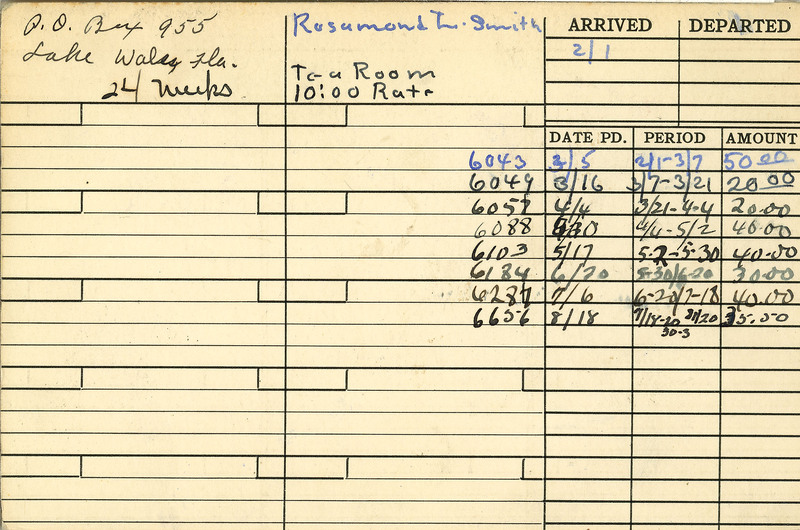 P.O. Box 955
Lake Wales, Fla.
24 Weeks
Rosamond L. Smith
Tea Room
10:00 Rate
ARRIVED DEPARTED
2/1
DATE PD. PERIOD AMOUNT
6043 3/5 2/1-3/7 50.00
6049 3/16 3/7-3/21 20.00
6057 4/4 3/21-4-4 20.00
6088 /30 4/4-5/2 40.00
6103 5/17 5-2-5-30 40.00
6184 6/20 5-30/6-20 30.00
6287 7/6 6-20/7-18 40.00
6656 8/18 7/18-20 8/20 35.00
30-3